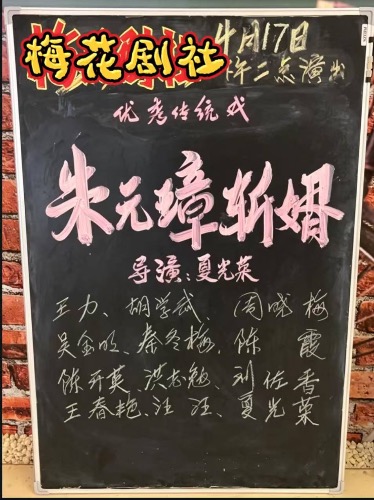 梅花剧社
4月17日
午二点演出
优秀传统戏
朱元璋斩婿
导演:夏光荣
王力、胡学武、周晓梅
吴金明、秦冬梅、陈霞
陈开英、洪志勉、刘佐香
王春艳、汪汪、夏光荣